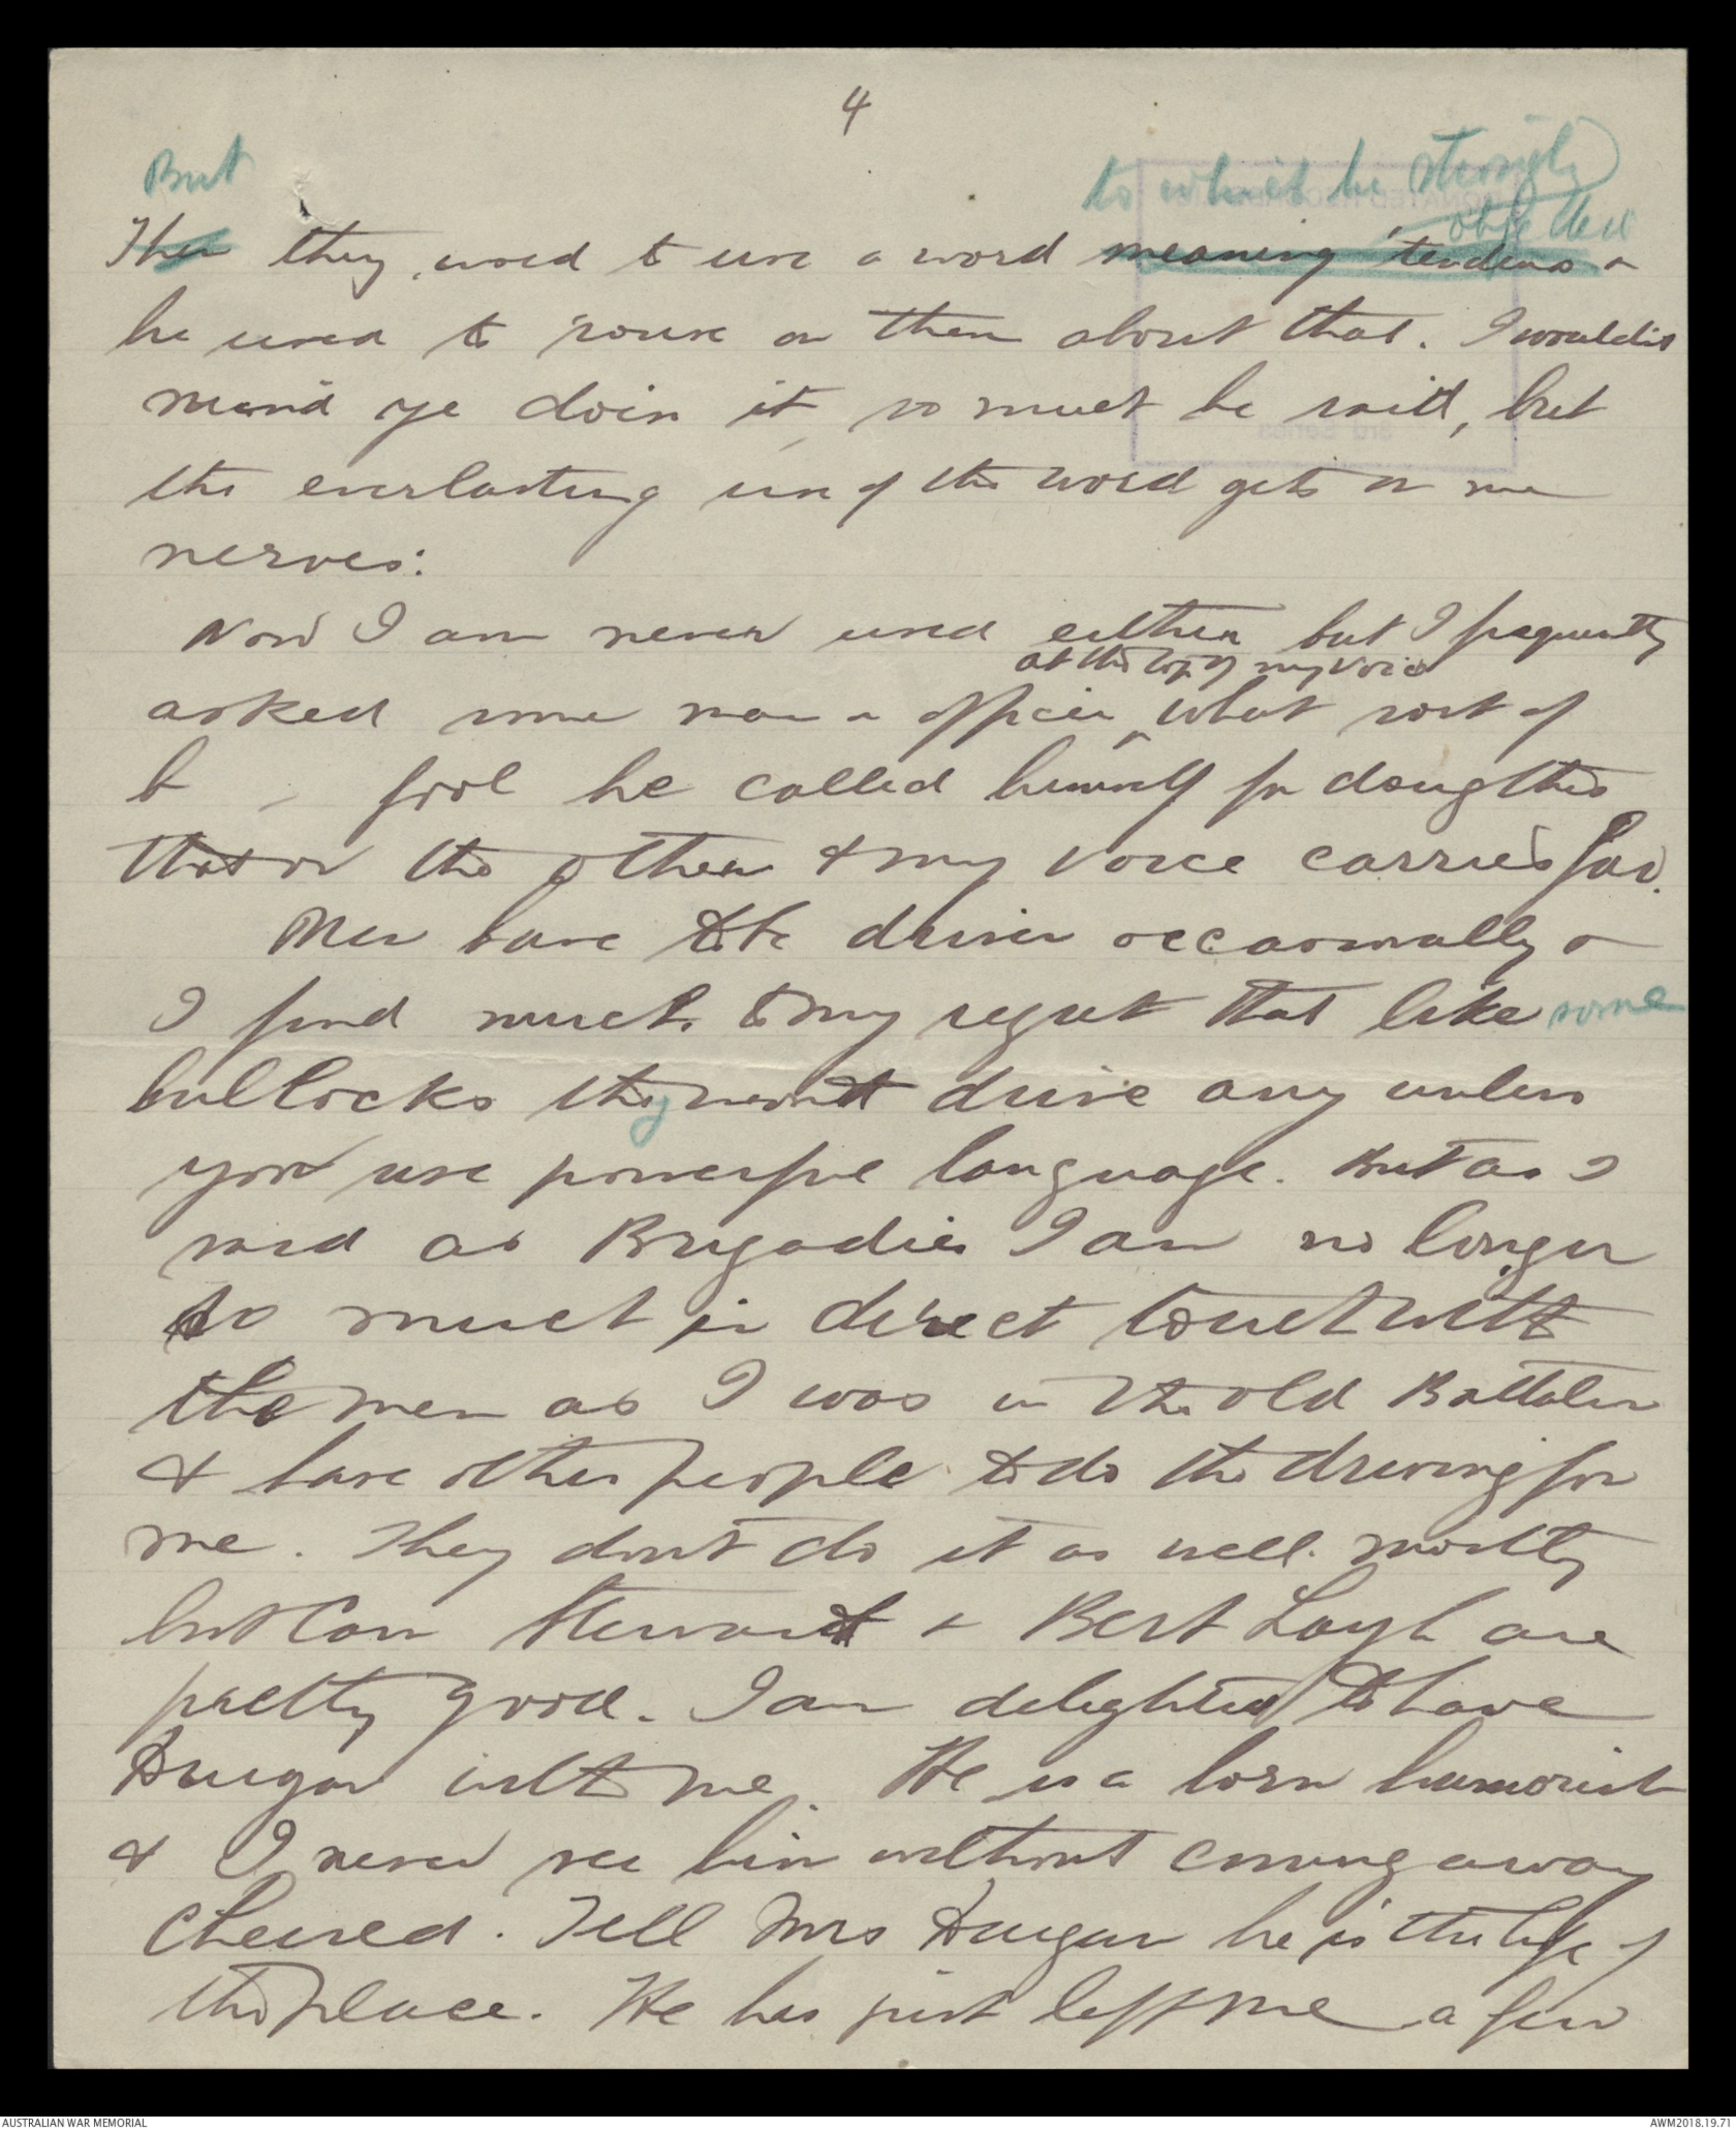 4
But
to which he strongly
objected
Then they used to use a word meaning 'tenders &
he used to rouse on them about that. I wouldn't
mind ye doin it so much he said, but
the everlasting use of the word gets on me
nerves:
Now I am never used either but I frequently
at the top of my voice
asked some man or officer ^ what sort of
b - fool he called himself for doing this
that or the other & my voice carries far.
Men have to be driven occasionally &
I find much to my regret that like some
bullocks they wont drive any unless
you use powerful language. But as I
said as Brigadier I am no longer
so much in direct touch with
the men as I was in the old Battalion
& have other people to do the driving for
me. They dont do it as well mostly
but Con Steward & Bert Layh are
pretty good. I am delighted to have
Durgan with me. He is a born humorist
& I never see him without coming away
cheered. Tell Mrs Durgan he is the life of
the place. He has just left me a few
AUSTRALIAN WAR MEMORIAL
AWM2018.19.71